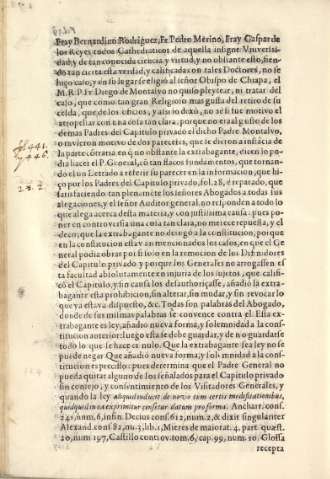 Fray Bernardino Rodriguez, Fr. Pedro Merino, Fray Gaspar de
los Reyes, todos Cathedraticos de aquella insigne Vniuersi-
dad, y de tan conocida ciencia, y virtud, y no obstante esto, sien-
do tan cierta esta verdad, y calificada con tales Doctores, no se
hizo caso, y sin su lugar se eligió al señor Obispo de Chiapa, el
M.R.P. Fr. Diego de Montalvo no quiso pleytear, ni tratar del
caso, que como tan gran Religioso mas gusta del retiro de su
celda, que de los oficios, y assi lo dexó, no se si fue motivo el
atropellar con una cosa tan clara, porque no era al gusto de los
demas Padres del Capitulo privado el dicho Padre Montalvo,
o tuvieron motivo de dos pareceres, que le dieron a instancia de
la parte contraria en que no obstante la extravagante, dicen lo po-
dia hacer el P. General, có tan flacos fundamentos, que tornan-
do el un Letrado a referir su parecer en la informacion, que hi-
ço por los Padres del Capitulo privado, fol. 28, é reparado, que
satisfaciendo tan plenamente los señores Abogados a todas las
alegaciones, y el señor Auditor general, no responden a todo lo
que alega acerca desta materia, y con justissima causa: pues po-
ner en controversia una cosa tan clara, no merece repuesta, y el
decir, que la extravagante no derogó a la constitucion, porque
en la constitucion estavan mencionados los casos, en que el Ge-
neral podia obrar por si solo en la remocion de los Difinidores
del Capitulo privado, y porque los Generales no arrogassen es-
ta facultad absolutamente en injuria de los sujetos, que calificó
el Capitulo, y sin causa los desauthoriçasse, añadió la extra-
bagante esta prohibicion, sin alterar, sin mudar, y sin revocar lo
que ya estava dispuesto, &c. Todas son palabras del Abogado,
donde de sus mismas palabras se convence contra el. Esta ex-
trabagante es ley, añadió nueva forma, y solemnidad a la consti-
tucion anterior: luego essa se debe guardar, y de no guardarse
todo lo que se hace es nulo. Que la extrabagante sea ley no se
puede negar. Que añadió nueva forma, y solemnidad a la consti-
tucion es preciso: pues determina que el Padre General no
pueda quitar alguno de los señalados para el Capitulo privado
sin consejo, y consentimiento de los Visitadores Generales, y
quando la ley aliquid inducit de novo cum certis modificationibus,
quidquid in ea exprimitur censetur datum pro forma. Ancharr. cons.
241, num. 6, in fin. Decius cons. 612, num. 2, & dixit singulariter
Alexand. cons. 82, nu. 3, lib. 1, Mieres de maiorat. 4. part. quæst.
20, num. 197, Castillo controv. tom. 6, cap. 99, num. 10. Glossa
recepta
fol 441.
y 446.
28. 2.